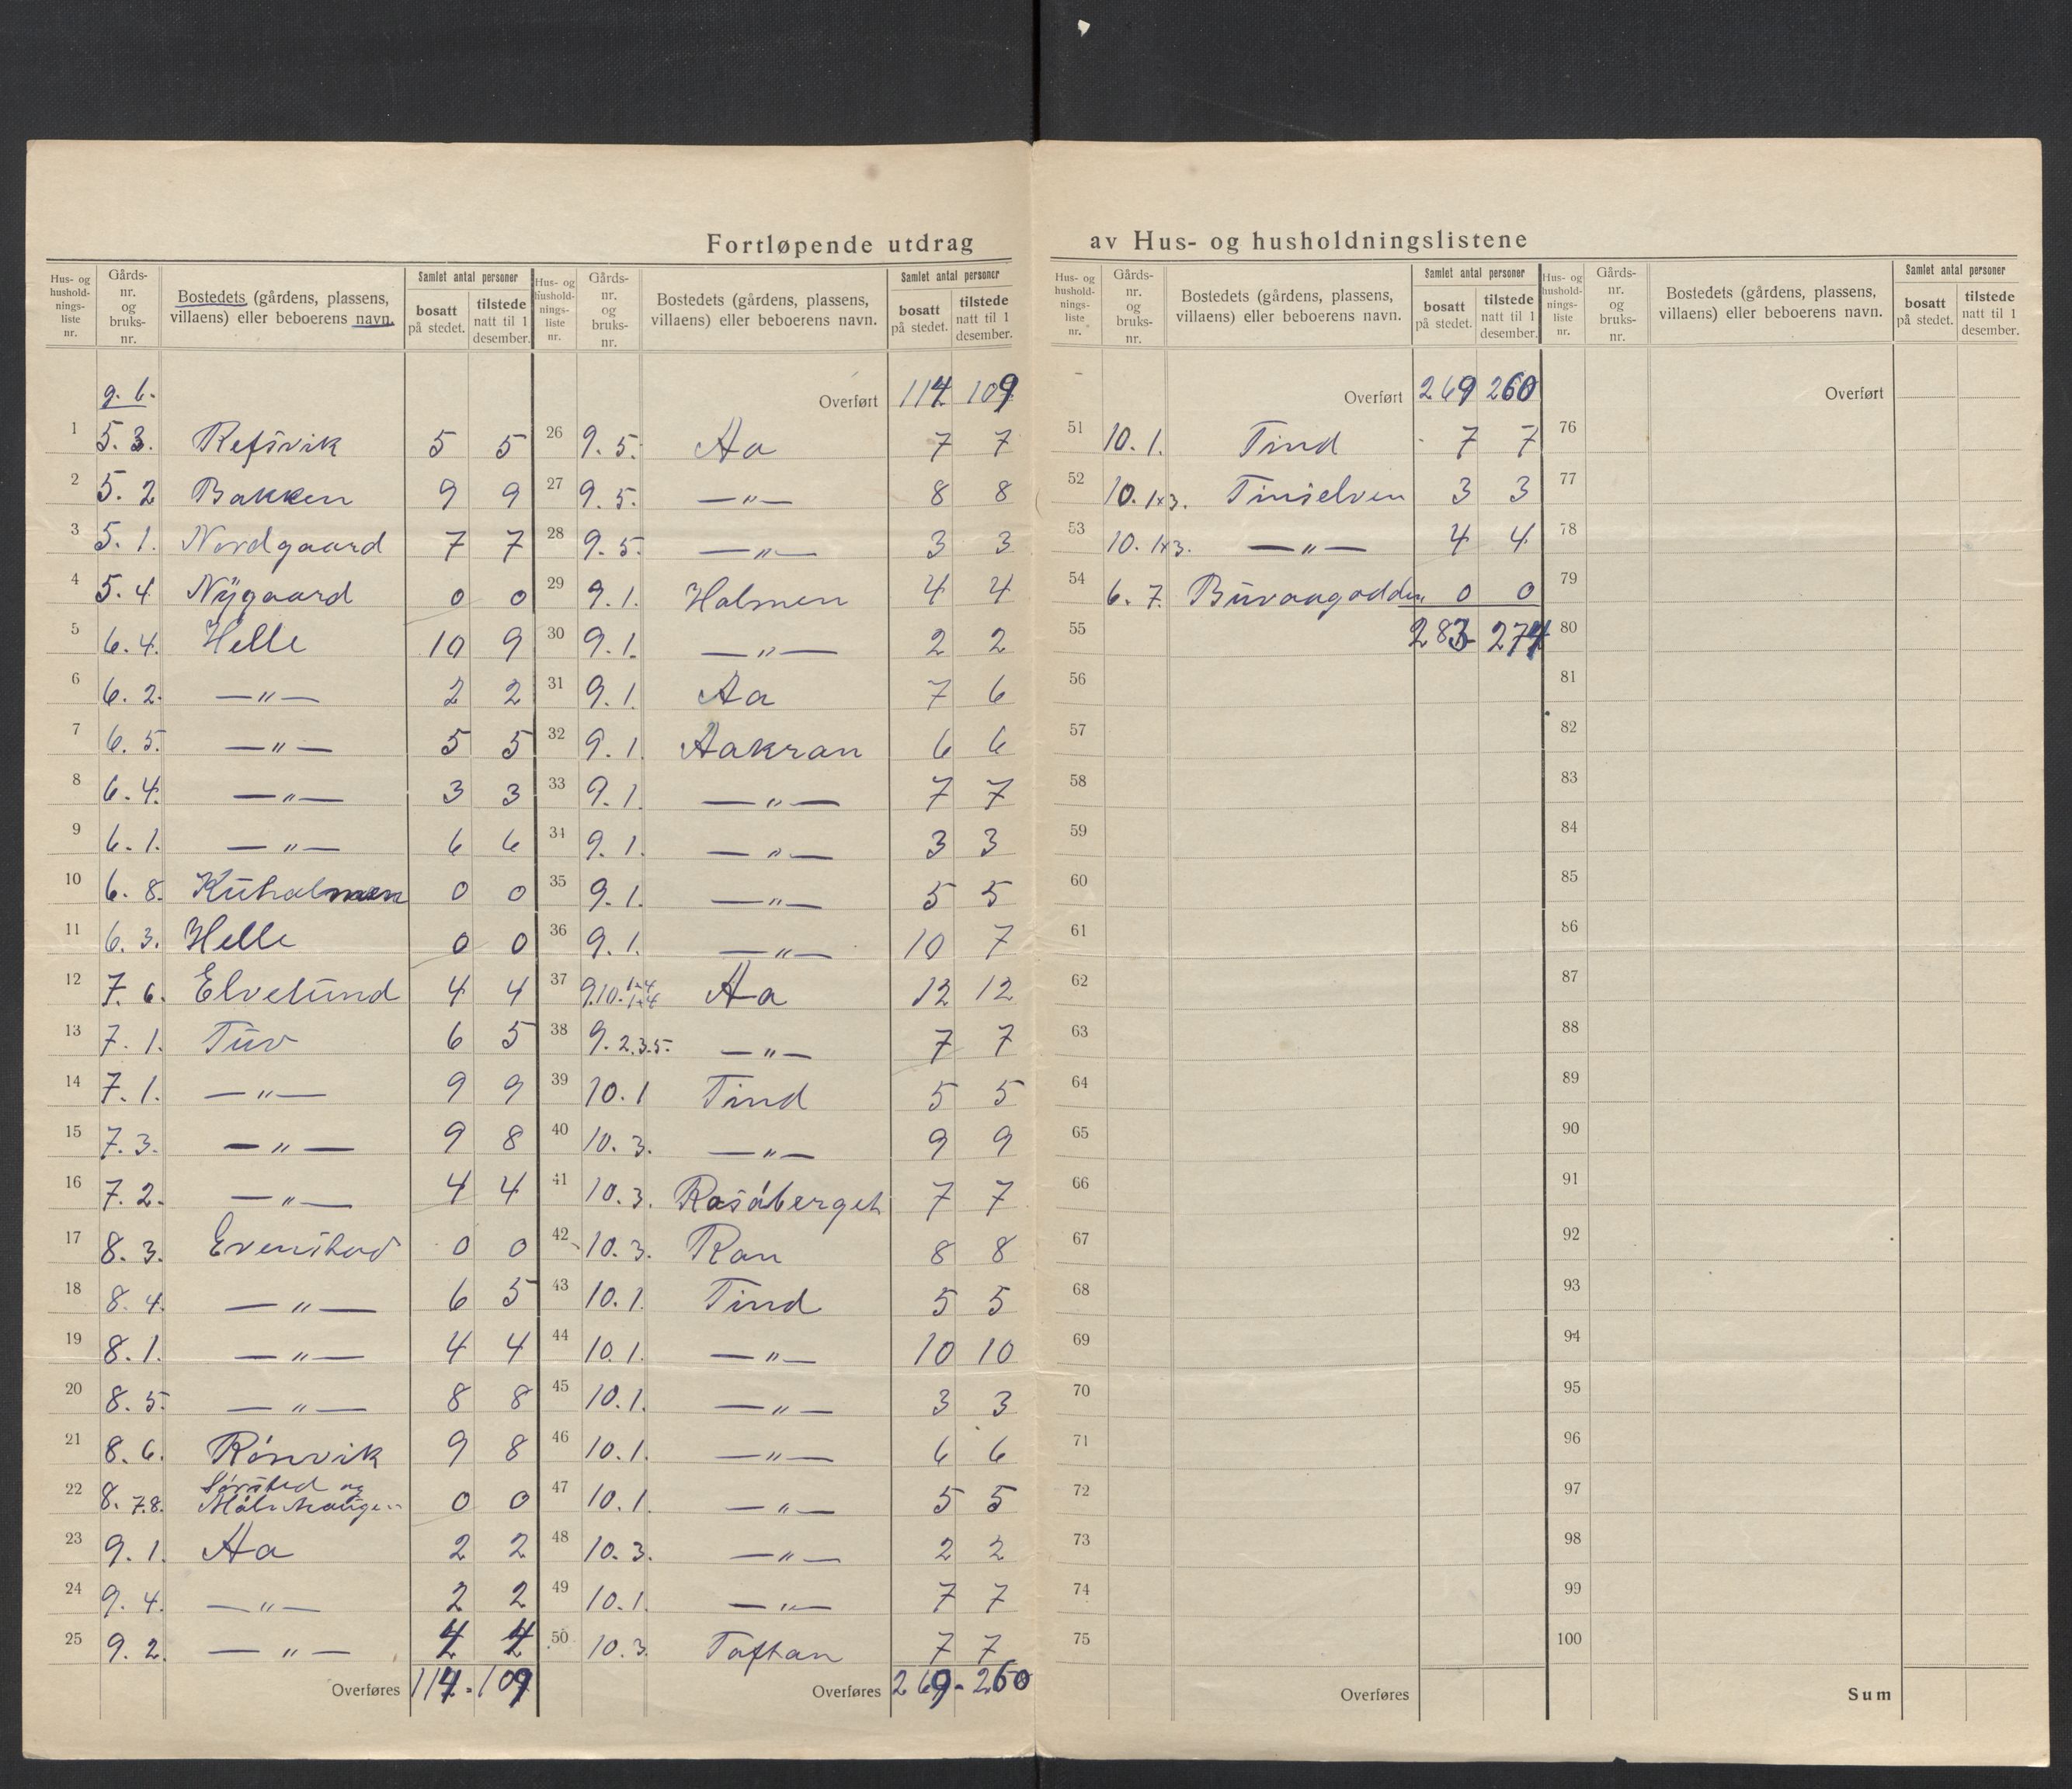 Fortløpende utdrag av Hus- og husholdningslistene
Hus- og husholdnings-liste nr. Gårds-nr. og bruks-nr. Bostedets (gårdens, plassens, villaens) eller beboerens navn. Samlet antal personer bosatt på stedet. tilstede natt til 1 desember.
g. b.
1 5. 3. Refsvik 5 5
2 5. 2 Bakken 9 9
3 5. 1. Nordgaard 7 7
4 5. 4 Nygaard 0 0
5 6. 4. Helle 10 9
6 6. 2. —"— 2 2
7 6. 5. —"— 5 5
8 6. 4. —"— 3 3
9 6. 1. —"— 6 6
10 6. 8. Kuholmen 0 0
11 6. 3. Helle 0 0
12 7. 6. Elvelund 4 4
13 7. 1. Tuv 6 5
14 7. 1. —"— 9 9
15 7. 3. —"— 9 8
16 7. 2. —"— 4 4
17 8. 3. Evenstad 0 0
18 8. 4. —"— 6 5
19 8. 1. —"— 4 4
20 8. 5. —"— 8 8
21 8. 6. Rónvik 9 8
22 8. 7.8. og 0 0
23 9. 1. Aa 2 2
24 9. 4. —"— 2 2
25 9. 2. —"— 4 4
Overføres 114. 109
Hus- og husholdnings-liste nr. Gårds-nr. og bruks-nr. Bostedets (gårdens, plassens, villaens) eller beboerens navn. Samlet antal personer bosatt på stedet. tilstede natt til 1 desember.
Overført 114 109
26 9. 5. Aa 7 7
27 9. 5. —"— 8 8
28 9. 5. —"— 3 3
29 9. 1. Holmen 4 4
30 9. 1. —"— 2 2
31 9. 1. Aa 7 6
32 9. 1. Aakran 6 6
33 9. 1. —"— 7 7
34 9. 1. —"— 3 3
35 9. 1. —"— 5 5
36 9. 1. —"— 10 7
37 9.10. 1+4 1+4 Aa 12 12
38 9. 2.3.5. —"— 7 7
39 10. 1 Tind 5 5
40 10. 3. —"— 9 9
41 10. 3. Rasåberget 7 7
42 10. 3. Ran 8 8
43 10. 1. Tind 5 5
44 10. 1. —"— 10 10
45 10. 1. —"— 3 3
46 10. 1. —"— 6 6
47 10. 1. —"— 5 5
48 10. 3. —"— 2 2
49 10. 1. —"— 7 7
50 10. 3. Toftan 7 7
Overføres 269. 260
Hus- og husholdnings-liste nr. Gårds-nr. og bruks-nr. Bostedets (gårdens, plassens, villaens) eller beboerens navn. Samlet antal personer bosatt på stedet. tilstede natt til 1 desember.
Overført 269 260
51 10. 1. Tind 7 7
52 10. 1+3. Tinselven 3 3
53 10. 1+3. —"— 4 4
54 6. 7. Buvaagodden 0 0
55 283 274
56
57
58
59
60
61
62
63
64
65
66
67
68
69
70
71
72
73
74
75
Overføres
Hus- og husholdnings-liste nr. Gårds-nr. og bruks-nr. Bostedets (gårdens, plassens, villaens) eller beboerens navn. Samlet antal personer bosatt på stedet. tilstede natt til 1 desember.
Overført
76
77
78
79
80
81
82
83
84
85
86
87
88
89
90
91
92
93
94
95
96
97
98
99
100
Sum